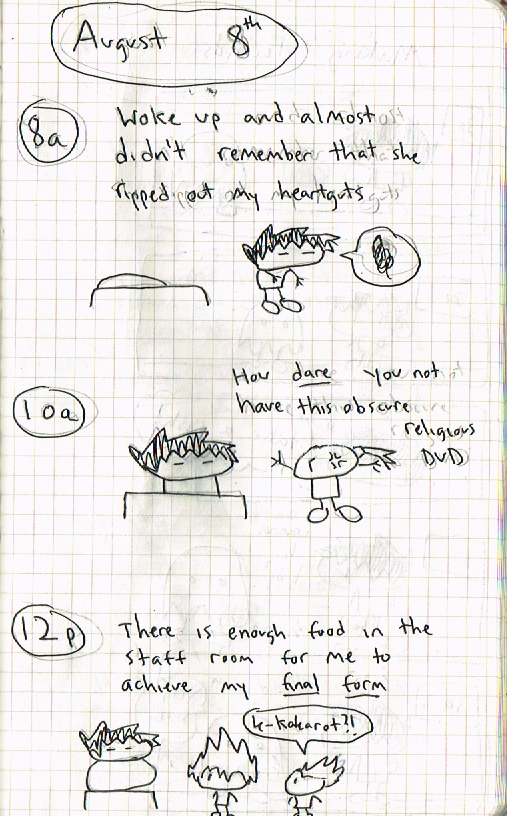 August 8th
8a
Woke up and almost
didn't remember that she
ripped out my heartguts
10a
How dare you not
have this obscure
religious
DVD
12p
There is enough food in the
staff room for me to
achieve my final form
K-Kakarot?!